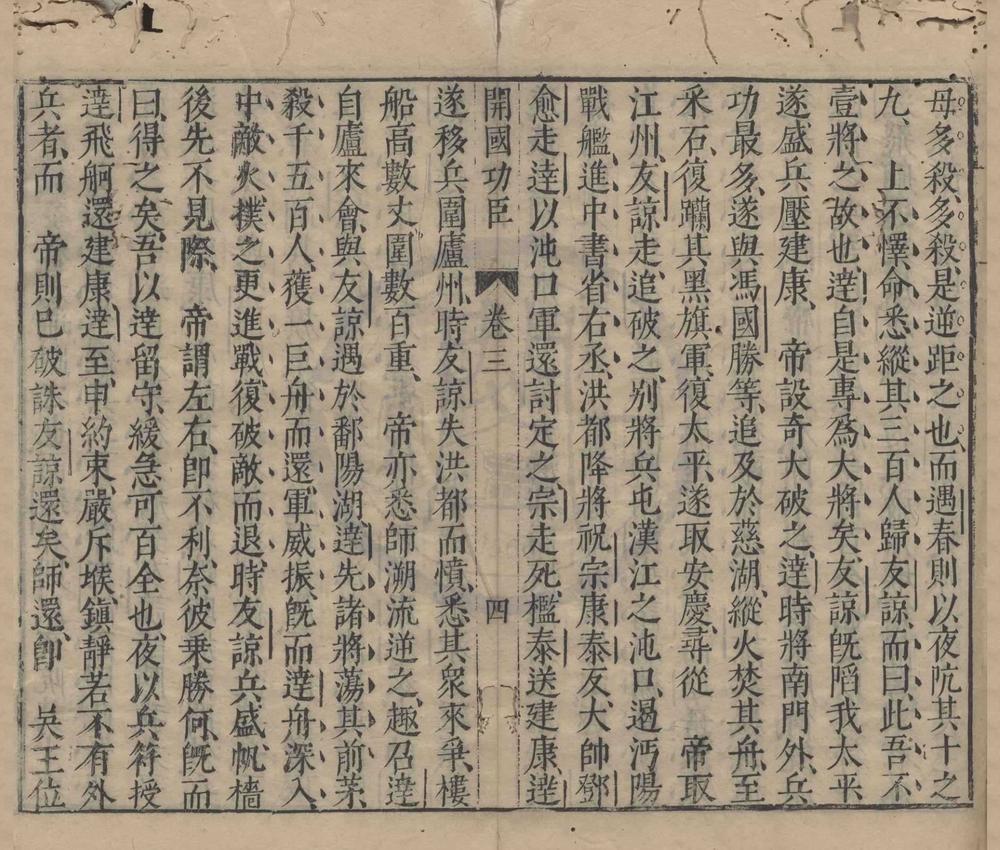 毋多殺、多殺、是逆距之也、而遇春則以夜阬其十之
九、 上不懌、命悉縱其三百人歸友諒、而曰、此吾不
壹將之故也、達自是專為大將矣、友諒旣陷我太平
遂盛兵壓建康、 帝設奇大破之、達時將南門外、兵
功最多、遂與馮國勝等、追及於慈湖、縱火焚其舟、至
采石、復躪其黑旗軍、復太平、遂取安慶、尋從 帝取
江州、友諒走、追破之、别將兵屯漢江之沌口、遏沔陽
戰艦、進中書省右丞、洪都降將祝宗康泰友、大帥鄧
愈走、達以沌口軍還討定之、宗走死、檻泰送建康、達
開國功臣 卷三 四
遂移兵圍廬州、時友諒失洪都而憤、悉其衆來爭、樓
船高數丈、圍數百重、 帝亦悉師溯流逆之、趣召達
自廬來會、與友諒遇於鄱陽湖、達先諸將蕩其前茅、
殺千五百人、獲一巨舟而還、軍威振、旣而達舟深入、
中敵火、撲之更進戰、復破敵而退、時友諒兵盛、帆檣
後先不見際、 帝謂左右、卽不利、奈彼乗勝何、旣而
曰、得之矣、吾以達留守、緩急可百全也、夜以兵符授
達飛舸還建康、達至、申約束、嚴斥堠、鎮靜若不有外
兵者、而 帝則已破誅友諒還矣、師還、卽 吳王位